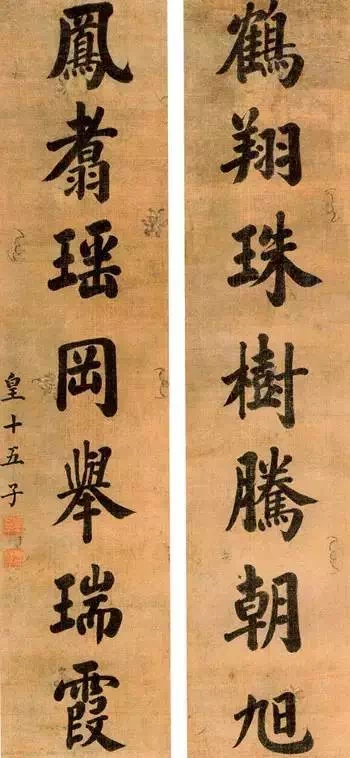 鶴翔珠樹騰朝旭
鳳翥瑤岡舉瑞霞
皇十五子